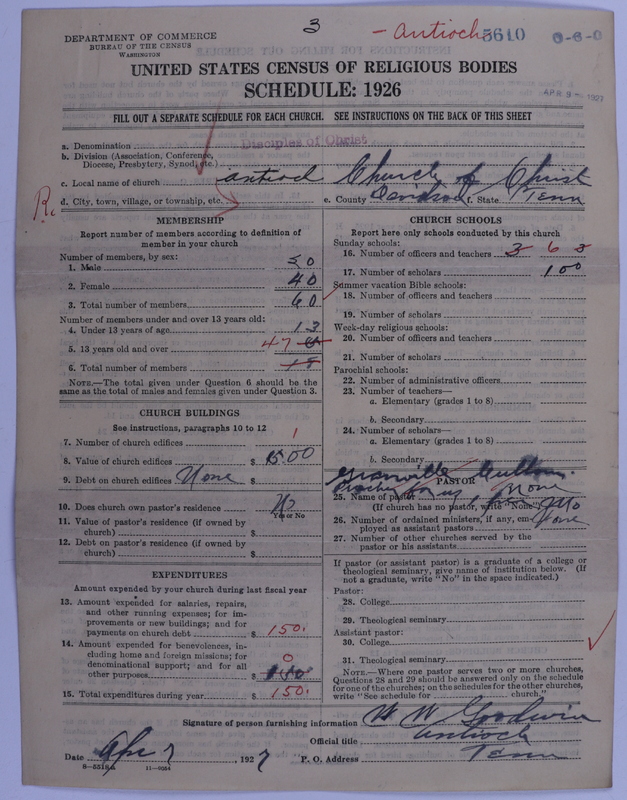 3 - Antioch 5610 0-6-0
DEPARTMENT OF COMMERCE
BUREAU OF THE CENSUS
WASHINGTON
UNITED STATES CENSUS OF RELIGIOUS BODIES
SCHEDULE: 1926
APR 9 - 1927
FILL OUT A SEPARATE SCHEDULE FOR EACH CHURCH. SEE INSTRUCTIONS ON THE BACK OF THIS SHEET
a. Denomination Disciples of Christ
b. Division (Association, Conference, Diocese, Presbytery, Synod, etc.)
c. Local name of church Antioch Church of Christ
d. City, town, village, or township, etc. e. County Davidson f. State Tenn
MEMBERSHIP
Report number of members according to definition of
member in your church
Number of members, by sex:
1. Male 20
2. Female 40
3. Total number of members 60
Number of members under and over 13 years old:
4. Under 13 years of age 13
5. 13 years old and over 47
6. Total number of members
NOTE.—The total given under Question 6 should be the
same as the total of males and females given under Question 3.
CHURCH BUILDINGS
See instructions, paragraphs 10 to 12
7. Number of church edifices 1
8. Value of church edifices $ 1500
9. Debt on church edifices None $
10. Does church own pastor's residence No
Yes or No
11. Value of pastor's residence (if owned by
church) $
12. Debt on pastor's residence (if owned by
church) $
EXPENDITURES
Amount expended by your church during last fiscal year
13. Amount expended for salaries, repairs,
and other running expenses; for im-
provements or new buildings; and for
payments on church debt $ 150.
14. Amount expended for benevolences, in-
cluding home and foreign missions; for
denominational support; and for all 0
other purposes $
15. Total expenditures during year $ 150.
CHURCH SCHOOLS
Report here only schools conducted by this church
Sunday schools:
16. Number of officers and teachers 3 6 3
17. Number of scholars 100
Summer vacation Bible schools:
18. Number of officers and teachers
19. Number of scholars
Week-day religious schools:
20. Number of officers and teachers
21. Number of scholars
Parochial schools:
22. Number of administrative officers
23. Number of teachers—
a. Elementary (grades 1 to 8)
b. Secondary
24. Number of scholars—
a. Elementary (grades 1 to 8)
b. Secondary
Granville
PASTOR
25. Name of pastor None
(If church has no pastor, write "None") No
26. Number of ordained ministers, if any, em-
ployed as assistant pastors None
27. Number of other churches served by the
pastor or his assistants
If pastor (or assistant pastor) is a graduate of a college or
theological seminary, give name of institution below. (If
not a graduate, write "No" in the space indicated.)
Pastor:
28. College
29. Theological seminary
Assistant pastor:
30. College
31. Theological seminary
NOTE.—Where one pastor serves two or more churches,
Questions 28 and 29 should be answered only on the schedule
for one of the churches; on the schedules for the other churches,
write "See schedule for church."
Signature of person furnishing information W W Goodwin
Official title Antioch
Date Apr 7, 1927 P. O. Address Tenn
8-5518a 11-9034